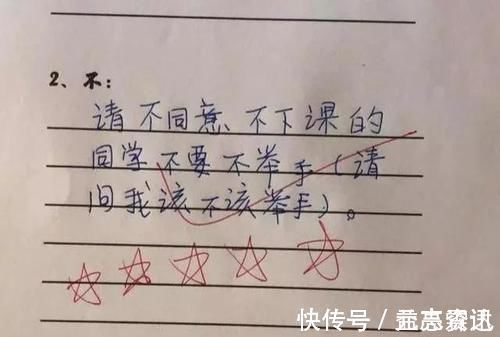 2、不:
请不同意不下课的
同学不要不举手(请
问我该不该举手)。
快传号/